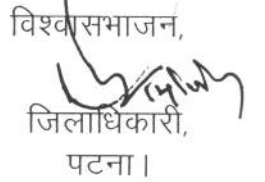 विश्वासभाजन,
जिलाधिकारी,
पटना।